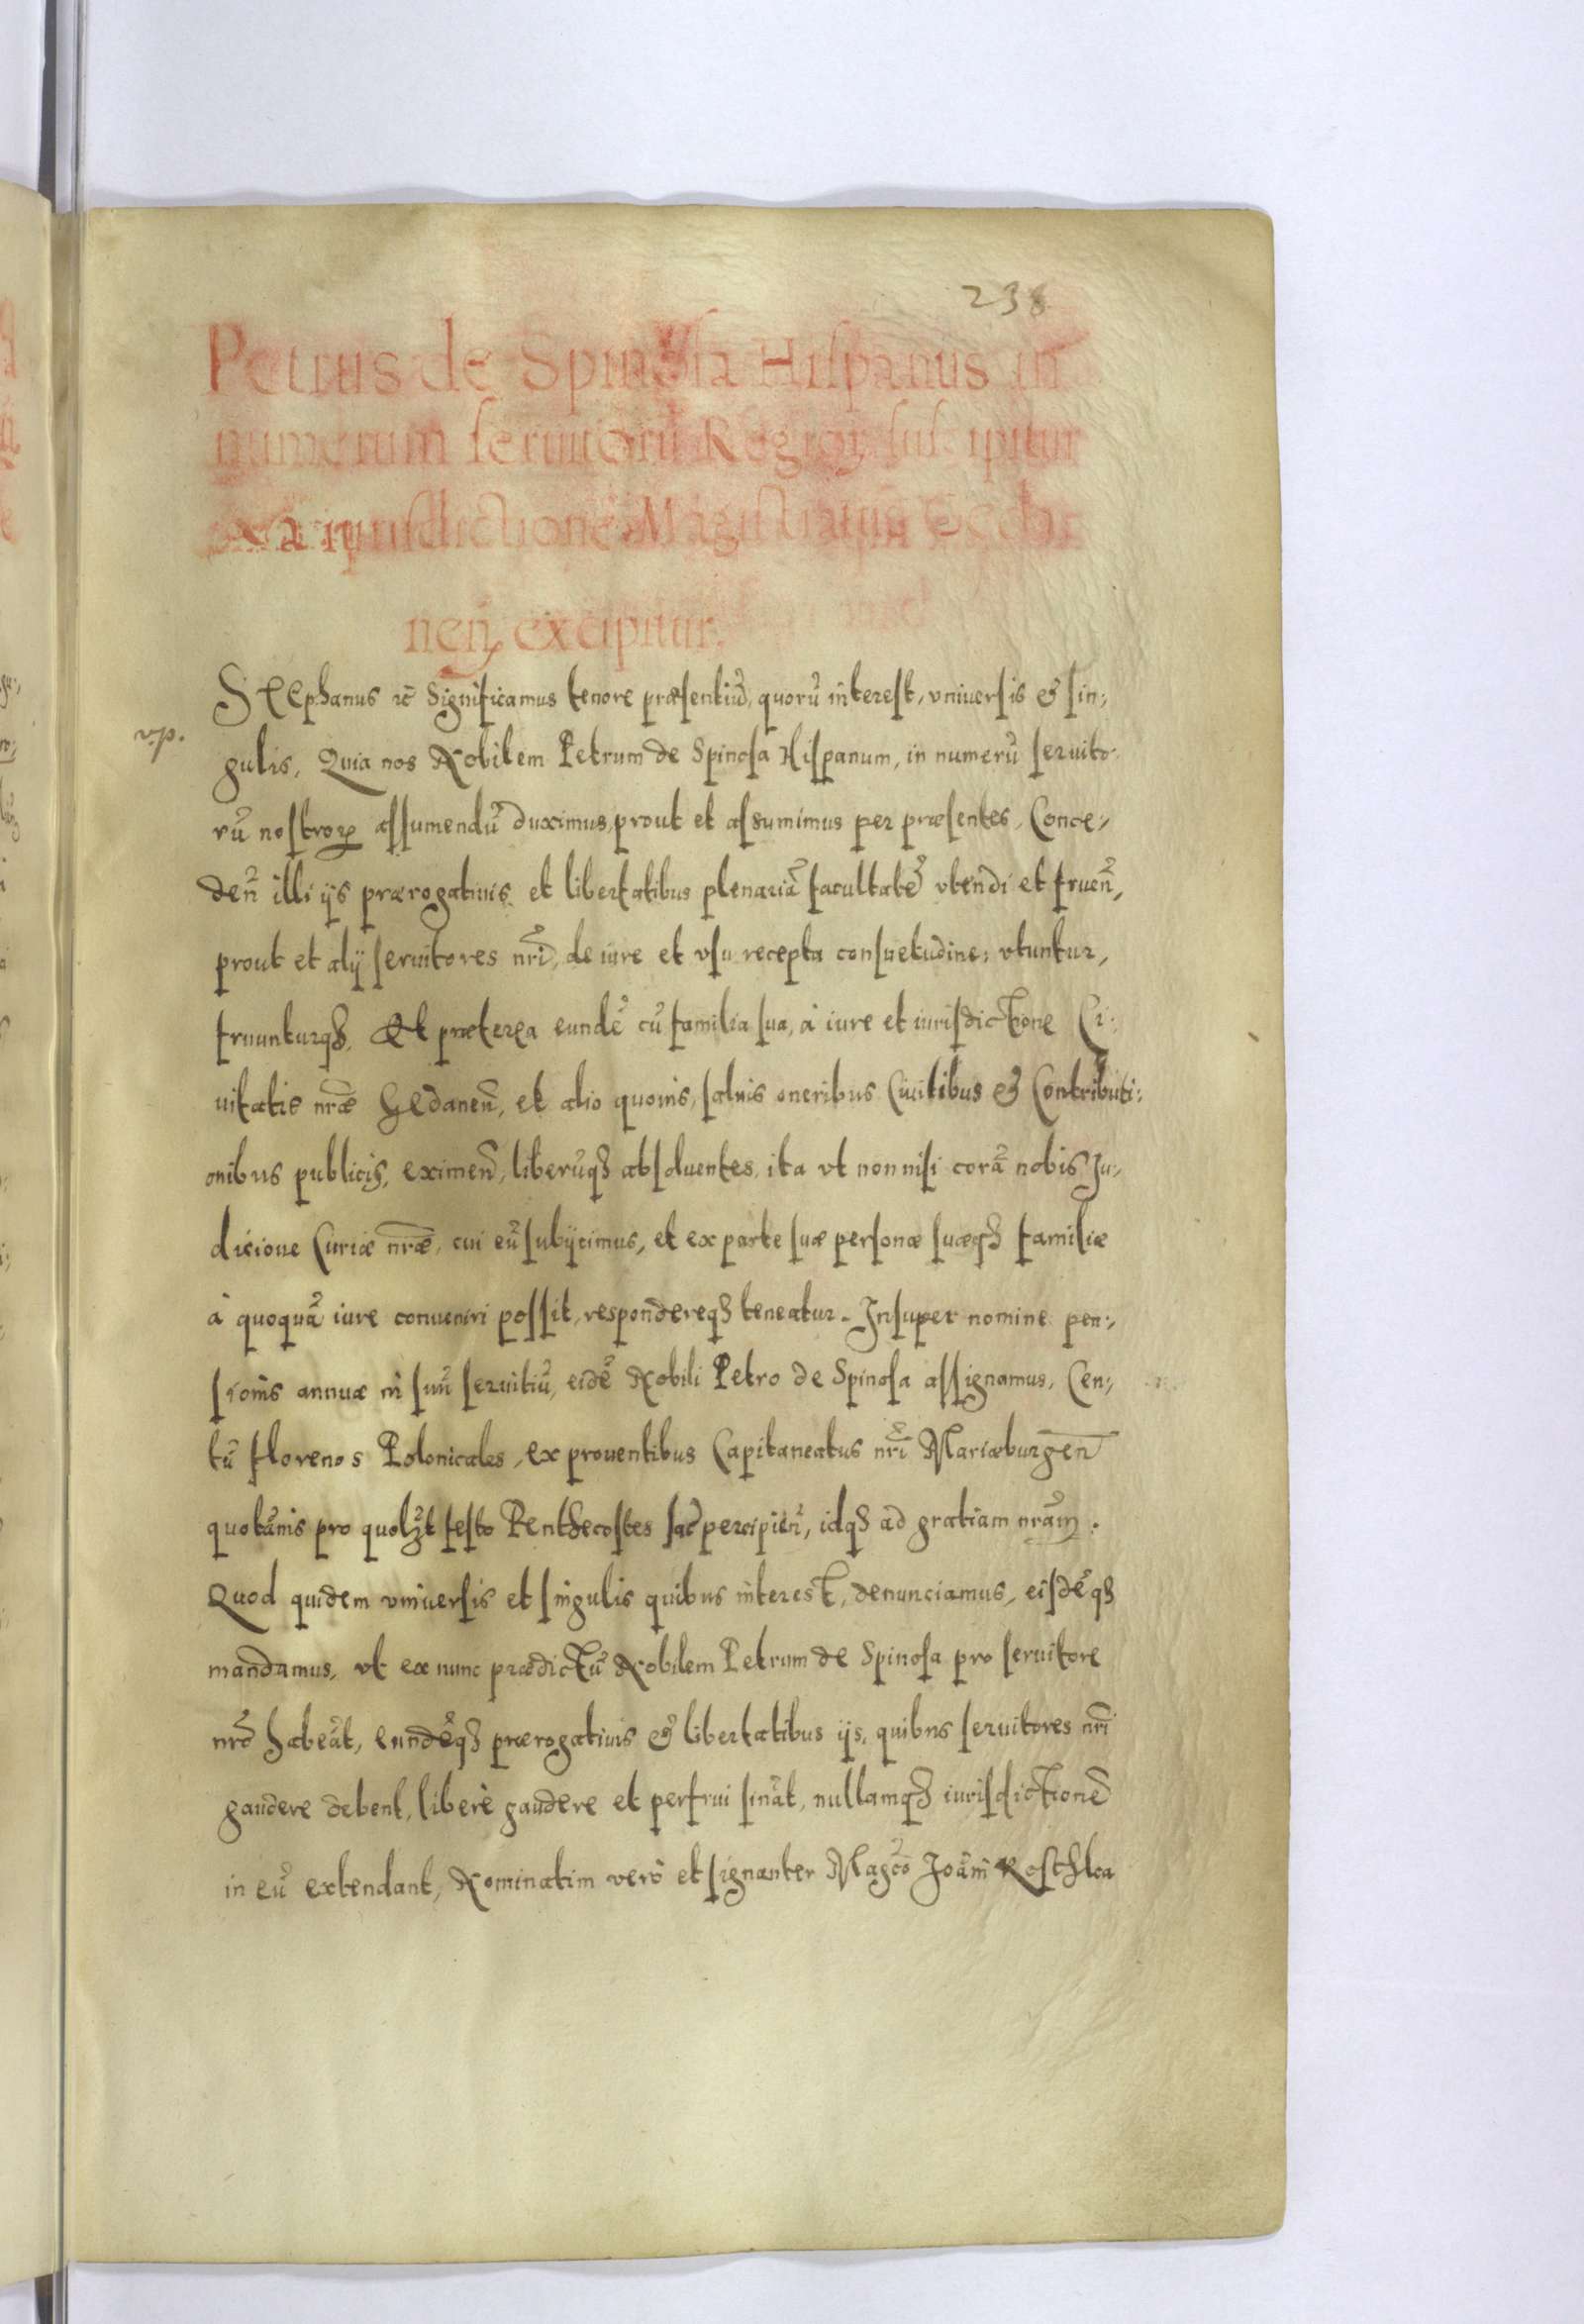 238
Petrus de Spinosa Hispanus in
numerum seruitorũ Regioꝝ suscipitur
ex a iurisdictione Magistratuũ Geda
nen̄ excipitur.
STEphanus ꝛc̃ Significamus tenore præsentiũ, quorũ interest, vniuersis & sin:,
gulis, Quia nos Nobilem Petrum de Spinosa Hispanum, in numerũ seruito:
rũ nostroꝝ assumendũ duximus, prout et assumimus per præsentes, Conce:,
den̄ illi ijs prærogatiuis et libertatibus plenariã facultatẽ vtendi et fruen̄,
prout et alij seruitores nr̃i, de iure et vsu recepta consuetudine, vtuntur,
fruunturqꝫ, Et præterea eundẽ cũ familia sua, à iure et iurisdictione Ci:
uitatis nr̃æ Gedanen̄, et alio quouis, saluis oneribus Ciuilibus & Contributi:
onibus publicis, eximen̄, liberũqꝫ absoluentes, ita vt non nisi corã nobis Ju:,
dicioue Curiæ nr̃æ, cui eũ subijcimus, et ex parte suæ personæ suæqꝫ familiæ
à quoquã iure conueniri possit, respondereqꝫ teneatur. Insuper nomine pen:,
sionis annuæ in suũ seruitiũ, eidẽ Nobili Petro de Spinosa assignamus, Cen:,
tũ florenos Polonicales, ex prouentibus Capitaneatus nr̃i Mariæburgen̄
quotãnis pro quolꝫt festo Penthecostes sac̃ percipien̄, idqꝫ ad gratiam nr̃am.
Quod quidem vniuersis et singulis quibus interest, denunciamus, eisdẽqꝫ
mandamus, vt ex nunc prædictũ Nobilem Petrum de Spinosa pro seruitore
nr̃o habeãt, eundẽqꝫ prærogatiuis & libertatibus ijs, quibus seruitores nr̃i
gaudere debent, liberè gaudere et perfrui sinãt, nullamqꝫ iurisdictionẽ
in eũ extendant, Nominatim verò et signanter Magc̃o Joãni